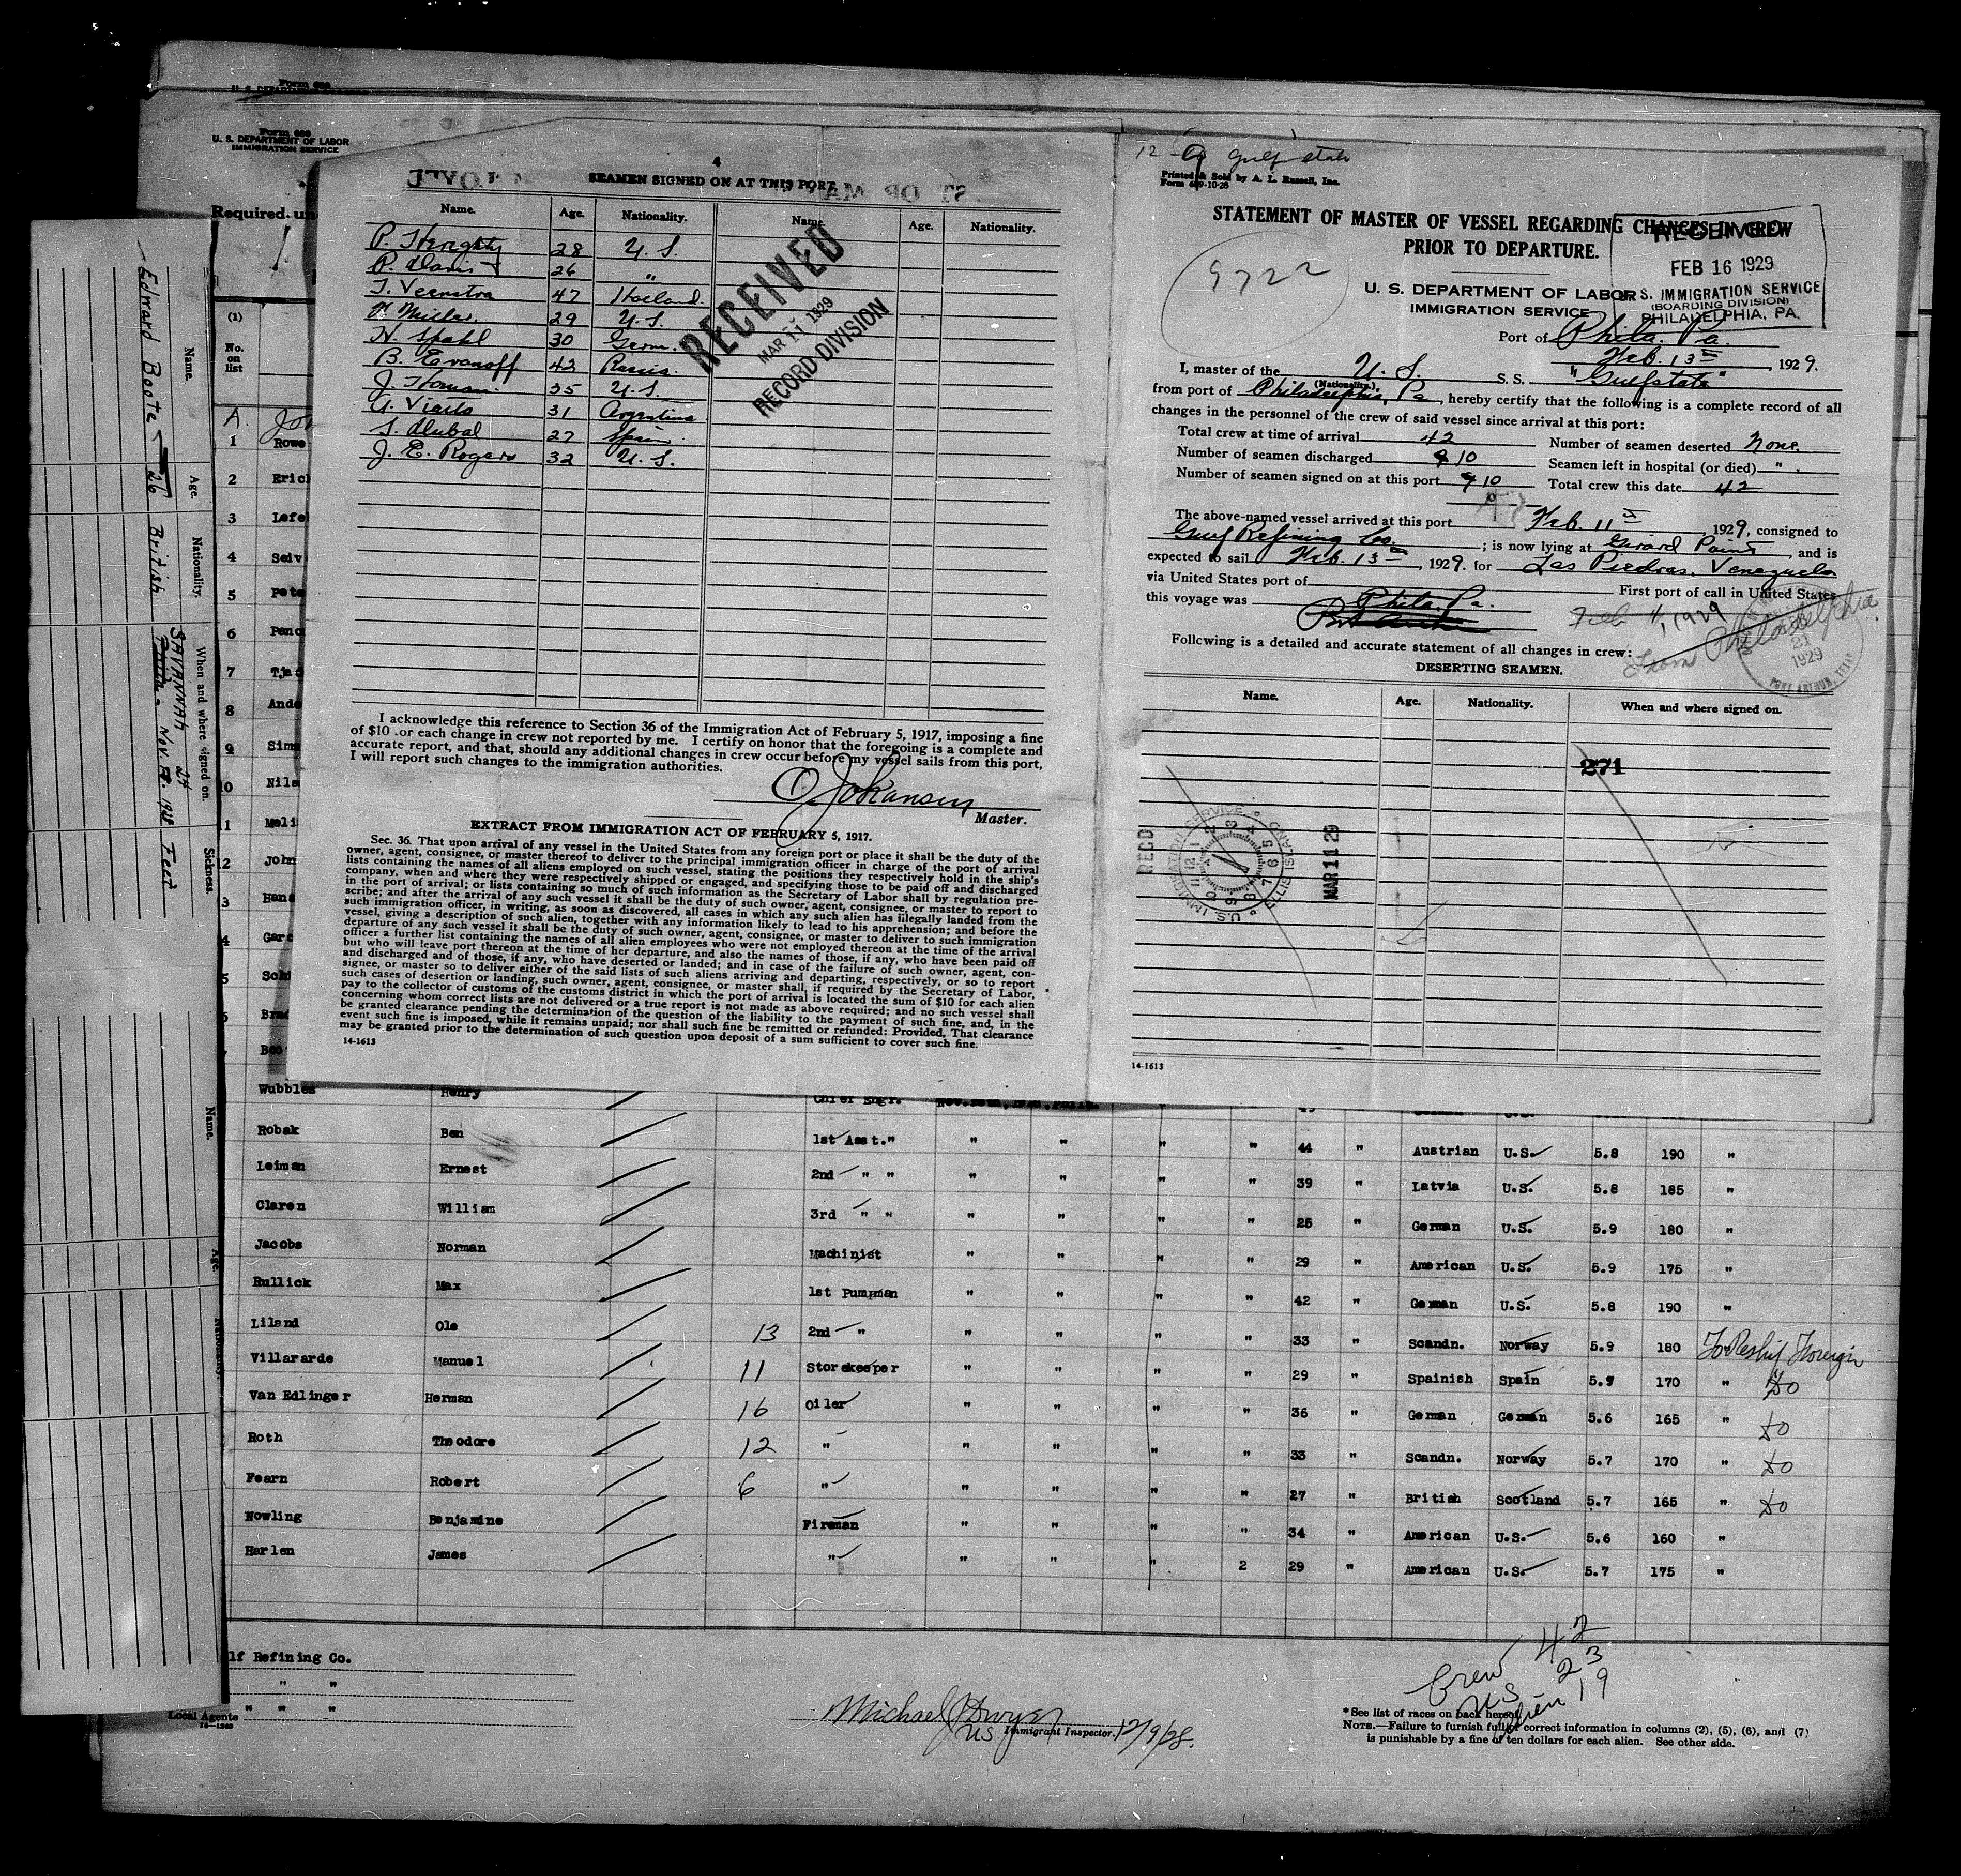 Form 689
U. S. DEPARTMENT OF LABOR
IMMIGRATION SERVICE
Required un
(1)
No.
on
list
A.
1 Rowe
2 Eric
3 Lefe
4 Seiv
5 Pete
6
7
8 Ande
9 Sims
10 Nils
1 Meli
2 John
3 Hans
4 Gard
5
6 Brad
Boo
Name. Age. Nationality. When and where signed on. Sickness.
Edward Boote 26 British SAVANNAH Nov. 1928 Feet
Name. Age. Nationality.
4
SEAMEN SIGNED ON AT THIS PORT.
Name. Age. Nationality. Name. Age. Nationality.
P. Heraghty 28 U. S.
P. Davis 26 "
T. Veenstra 47 Holland.
Miller. 29 U. S.
H. Spahl 30 Germ.
B. Evanoff 42 Russia.
J. Homan 35 U. S.
31 Argentina
27 Spain.
J. E. Rogers 32 U. S.
RECEIVED
MAR 11 1929
RECORD DIVISION
I acknowledge this reference to Section 36 of the Immigration Act of February 5, 1917, imposing a fine
of $10 .or each change in crew not reported by me. I certify on honor that the foregoing is a complete and
accurate report, and that, should any additional changes in crew occur before my vessel sails from this port,
I will report such changes to the immigration authorities.
O. Johansen
Master.
EXTRACT FROM IMMIGRATION ACT OF FEBRUARY 5, 1917.
Sec. 36. That upon arrival of any vessel in the United States from any foreign port or place it shall be the duty of the
owner, agent, consignee, or master thereof to deliver to the principal immigration officer in charge of the port of arrival
lists containing the names of all aliens employed on such vessel, stating the positions they respectively hold in the ship's
company, when and where they were respectively shipped or engaged, and specifying those to be paid off and discharged
in the port of arrival; or lists containing so much of such information as the Secretary of Labor shall by regulation pre-
scribe; and after the arrival of any such vessel it shall be the duty of such owner, agent, consignee, or master to report to
such immigration officer, in writing, as soon as discovered, all cases in which any such alien has illegally landed from the
vessel, giving a description of such alien, together with any information likely to lead to his apprehension; and before the
departure of any such vessel it shall be the duty of such owner, agent, consignee, or master to deliver to such immigration
officer a further list containing the names of all alien employees who were not employed thereon at the time of the arrival
but who will leave port thereon at the time of her departure, and also the names of those, if any, who have been paid off
and discharged and of those, if any, who have deserted or landed; and in case of the failure of such owner, agent, con-
signee, or master so to deliver either of the said lists of such aliens arriving and departing, respectively, or so to report
such cases of desertion or landing, such owner, agent, consignee, or master shall, if required by the Secretary of Labor,
pay to the collector of customs of the customs district in which the port of arrival is located the sum of $10 for each alien
concerning whom correct lists are not delivered or a true report is not made as above required; and no such vessel shall
be granted clearance pending the determination of the question of the liability to the payment of such fine, and, in the
event such fine is imposed, while it remains unpaid; nor shall such fine be remitted or refunded: Provided, That clearance
may be granted prior to the determination of such question upon deposit of a sum sufficient to cover such fine.
14-1613
12 Gulf state
Printed & Sold by A. L. Russell, Inc.
Form 689-10-28
STATEMENT OF MASTER OF VESSEL REGARDING CHANGES IN CREW
PRIOR TO DEPARTURE.
9722
RECEIVED
FEB 16 1929
U. S. IMMIGRATION SERVICE
(BOARDING DIVISION)
PHILADELPHIA, PA.
U. S. DEPARTMENT OF LABOR
IMMIGRATION SERVICE
Port of Phila. Pa.
Feb. 13th, 1929.
I, master of the U. S. S. S. "Gulfstate"
(Nationality)
from port of Philadelphia, Pa., hereby certify that the following is a complete record of all
changes in the personnel of the crew of said vessel since arrival at this port:
Total crew at time of arrival 42 Number of seamen deserted None.
Number of seamen discharged 9 10 Seamen left in hospital (or died) " .
Number of seamen signed on at this port 9 10 Total crew this date 42
The above-named vessel arrived at this port Feb. 11th 1929, consigned to
Gulf Refining Co. ; is now lying at Girard Point, and is
expected to sail Feb. 13th, 1929. for Las Piedras, Venezuela
via United States port of First port of call in United States
this voyage was Phila. Pa.
Feb 11, 1929
From Philadelphia
21
1929
PORT ARTHUR, TEXAS
Following is a detailed and accurate statement of all changes in crew:
DESERTING SEAMEN.
Name. Age. Nationality. When and where signed on.
271
RECD
U.S. IMMIGRATION SERVICE ELLIS ISLAND
MAR 11 29
14-1613
Wubbles Henry Chief Engr.
Robak Ben 1st Asst." " " " " 44 " Austrian U.S. 5.8 190 "
Leiman Ernest 2nd " " " " " " 39 " Latvia U.S. 5.8 185 "
Claren William 3rd " " " " " " 25 " German U.S. 5.9 180 "
Jacobs Norman Machinist " " " " 29 " American U.S. 5.9 175 "
Rullick Max 1st Pumpman " " " " 42 " German U.S. 5.8 190 "
Liland Ole 13 2nd " " " " " 33 " Scandn. Norway 5.9 180 To Reship Foreign
Villararde Manuel 11 Storekeeper " " " " 29 " Spainish Spain 5.9 170 " Do
Van Edlinger Herman 16 Oiler " " " " 36 " German German 5.6 165 " Do
Roth Theodore 12 " " " " " 33 " Scandn. Norway 5.7 170 " Do
Fearn Robert 6 " " " " " 27 " British Scotland 5.7 165 " Do
Nowling Benjamine Fireman " " " " 34 " American U.S. 5.6 160 "
Harlen James " " " " 2 29 " American U.S. 5.7 175 "
lf Refining Co.
" "
Local Agents " " "
Michael J Dwyer
U.S. Immigrant Inspector. 12/9/28.
Crew 42
US 23
Alien 19
*See list of races on back hereof.
NOTE.—Failure to furnish full or correct information in columns (2), (5), (6), and (7)
is punishable by a fine of ten dollars for each alien. See other side.